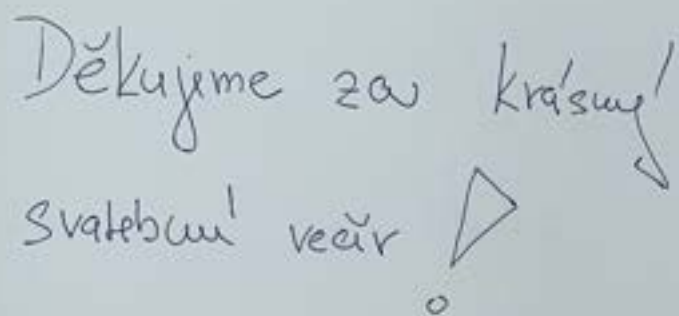 Děkujeme za krásný
svatební večír!